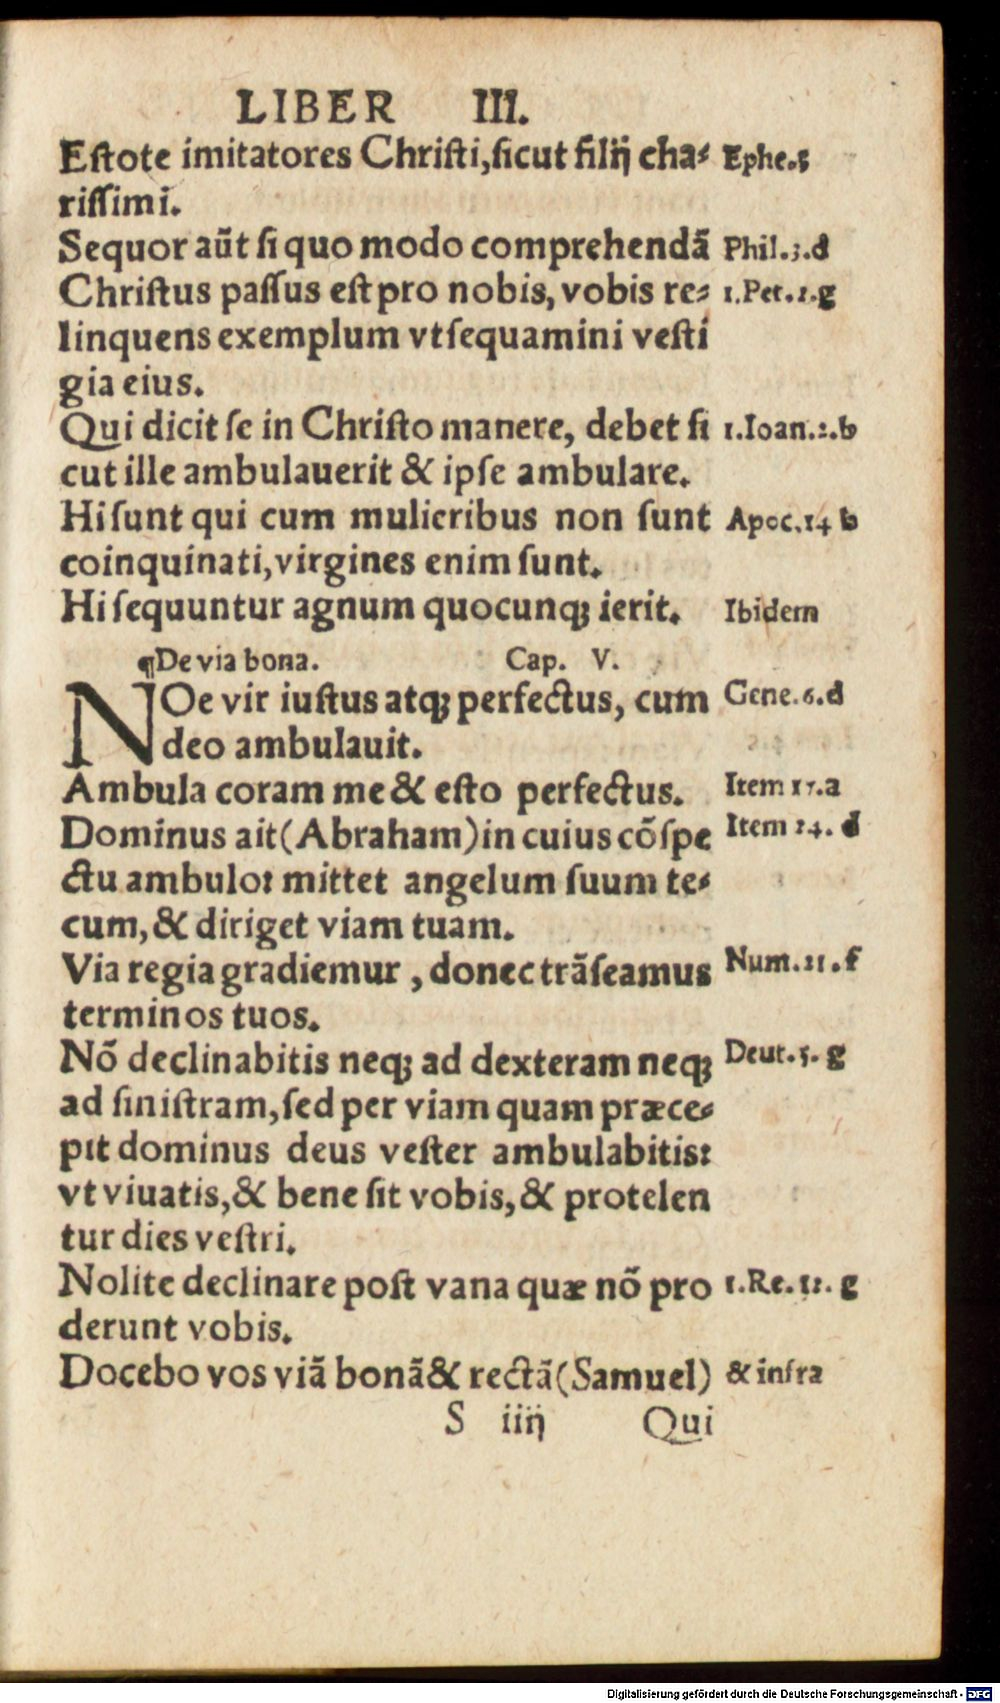 LIBER III.
Eſtote imitatores Chriſti, ſicut filij cha⸗ Ephe.5
riſſimi.
Sequor aūt ſi quo modo comprehendã Phil.3.d
Chriſtus paſſus eſt pro nobis, vobis re⸗ 1.Pet.2.g
linquens exemplum vt ſequamini veſti
gia eius.
Qui dicit ſe in Chriſto manere, debet ſi 1.Ioan.2.b
cut ille ambulauerit & ipſe ambulare.
Hi ſunt qui cum mulieribus non ſunt Apoc.14 b
coinquinati, virgines enim ſunt.
Hi ſequuntur agnum quocunq; ierit. Ibidem
¶De via bona. Cap. V.
NOe vir iuſtus atq; perfectus, cum Gene.6.d
deo ambulauit.
Ambula coram me & eſto perfectus. Item 17.a
Dominus ait (Abraham) in cuius cõſpe Item 24. d
ctu ambulo: mittet angelum ſuum te⸗
cum, & diriget viam tuam.
Via regia gradiemur, donec trãſeamus Num.21.f
terminos tuos.
Nõ declinabitis neq; ad dexteram neq; Deut.5.g
ad ſiniſtram, ſed per viam quam præce⸗
pit dominus deus veſter ambulabitis:
vt viuatis, & bene ſit vobis, & protelen
tur dies veſtri.
Nolite declinare poſt vana quæ nõ pro 1.Re.12.g
derunt vobis.
Docebo vos viã bonã & rectã (Samuel) & infra
S iiij Qui
Digitalisierung gefördert durch die Deutsche Forschungsgemeinschaft - DFG